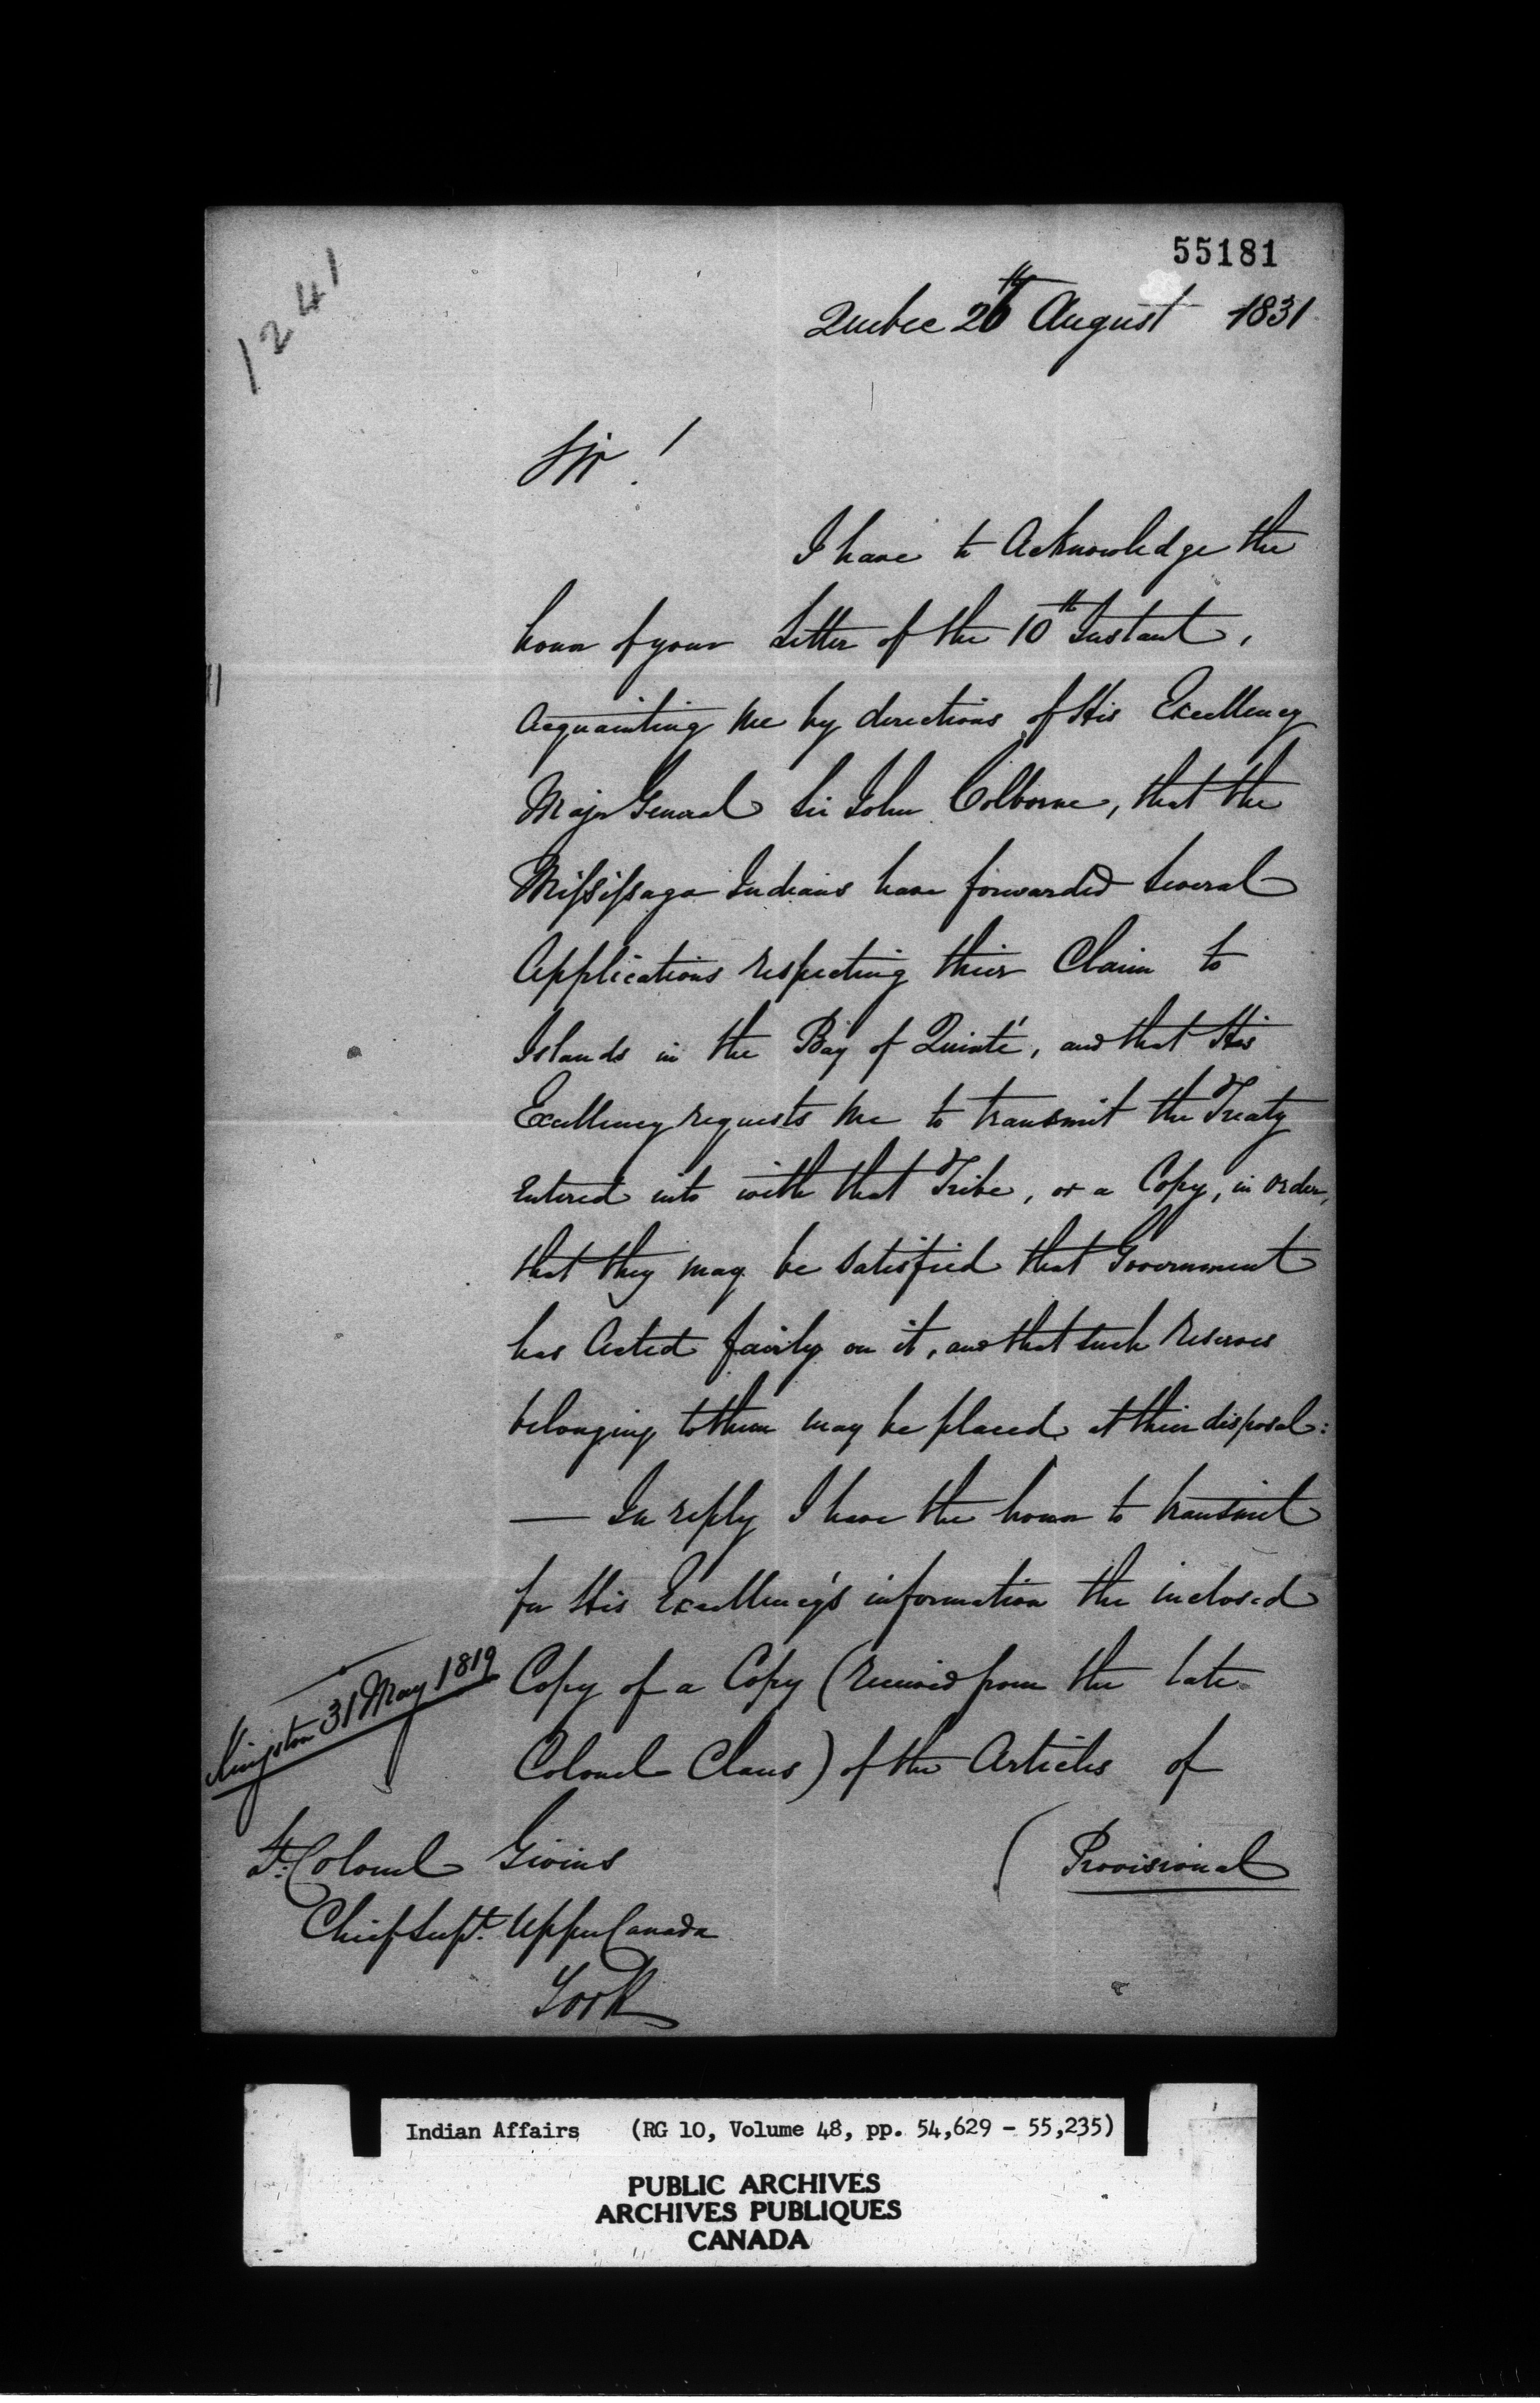 55181
1241
Quebec 26th August 1831
Sir!
I have to Acknowledge the
honor of your Letter of the 10th Instant,
Acquainting me by directions of His Excellency
Major General Sir John Colborne, that the
Mississaga Indians have forwarded Several
Applications respecting thier Claim to
Islands in the Bay of Quinté, and that His
Excellency requests me to transmit the Treaty
Entered into with that Tribe, or a Copy, in order,
that they may be satisfied that Government
has Acted fairly on it, and that such Reserves
belonging to them may be placed at their disposal:
— In reply I have the honor to transmit
for His Excellency's information the inclosed
Copy of a Copy (received from the late
Kingston 31 May 1819
Colonel Claus) of the Articles of
(Provisional
Lt. Colonel Givins
Chief Supt. Upper Canada
York
Indian Affairs (RG 10, Volume 48, pp. 54,629 - 55,235)
PUBLIC ARCHIVES
ARCHIVES PUBLIQUES
CANADA